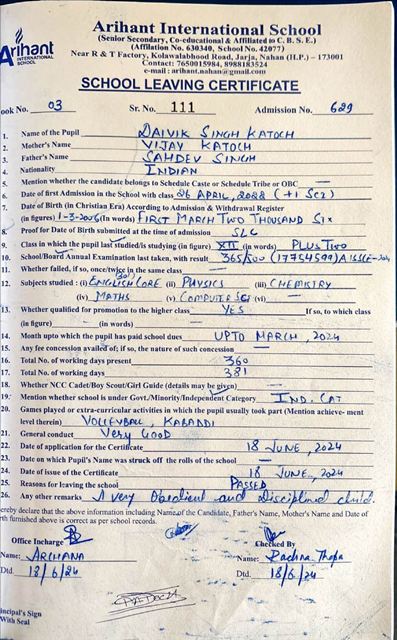 Arihant International School
(Senior Secondary, Co-educational & Affiliated to C. B. S. E.)
(Affilation No. 630340, School No. 42077)
Near R & T Factory, Kolawalabhood Road, Jarja, Nahan (H.P.) – 173001
Contact: 7650015984, 8988183524
e-mail : arihant.nahan@gmail.com
Arihant
INTERNATIONAL
SCHOOL
SCHOOL LEAVING CERTIFICATE
ook No. 03 Sr. No. 111 Admission No. 629
1. Name of the Pupil DAIVIK SINGH KATOCH
2. Mother's Name VIJAY KATOCH
3. Father's Name SAHDEV SINGH
4. Nationality INDIAN
5. Mention whether the candidate belongs to Schedule Caste or Schedule Tribe or OBC —
6. Date of first Admission in the School with class 26 APRIL, 2022 (+1 Sci)
7. Date of Birth (in Christian Era) According to Admission & Withdrawal Register
(in figures) 1-3-2006 (In words) FIRST MARCH TWO THOUSAND SIX
8. Proof for Date of Birth submitted at the time of admission SLC
9. Class in which the pupil last studied/is studying (in figure) XII (in words) PLUS TWO
10. School/Board Annual Examination last taken, with result 365/500 (17754599) AISSCE-2024
11. Whether failed, if so, once/twice in the same class —
12. Subjects studied : (i) ENGLISH CORE (301) (ii) PHYSICS (iii) CHEMISTRY
(iv) MATHS (v) COMPUTER SCI (vi) —
13. Whether qualified for promotion to the higher class YES If so, to which class
(in figure) — (in words) —
14. Month upto which the pupil has paid school dues UPTO MARCH, 2024
15. Any fee concession availed of; if so, the nature of such concession —
16. Total No. of working days present 360
17. Total No. of working days 381
18. Whether NCC Cadet/Boy Scout/Girl Guide (details may be given) —
19. Mention whether school is under Govt./Minority/Independent Category IND. CAT
20. Games played or extra-curricular activities in which the pupil usually took part (Mention achieve- ment
level therein) VOLLEYBALL, KABADDI
21. General conduct Very GOOD
22. Date of application for the Certificate 18 JUNE, 2024
23. Date on which Pupil's Name was struck off the rolls of the school —
24. Date of issue of the Certificate 18 JUNE, 2024
25. Reasons for leaving the school PASSED
26. Any other remarks A very Obedient and disciplined child.
ereby declare that the above information including Name of the Candidate, Father's Name, Mother's Name and Date of
rth furnished above is correct as per school records.
Office Incharge Checked By
Name: ARCHANA Name: Rachna Thapa
Dtd. 18/6/24 Dtd. 18/6/24
incipal's Sign
With Seal